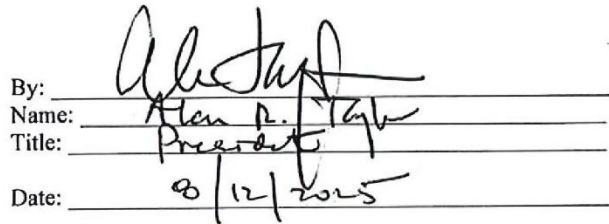 By:
Name: Alan R. Taylor
Title: President
Date: 8/12/2025